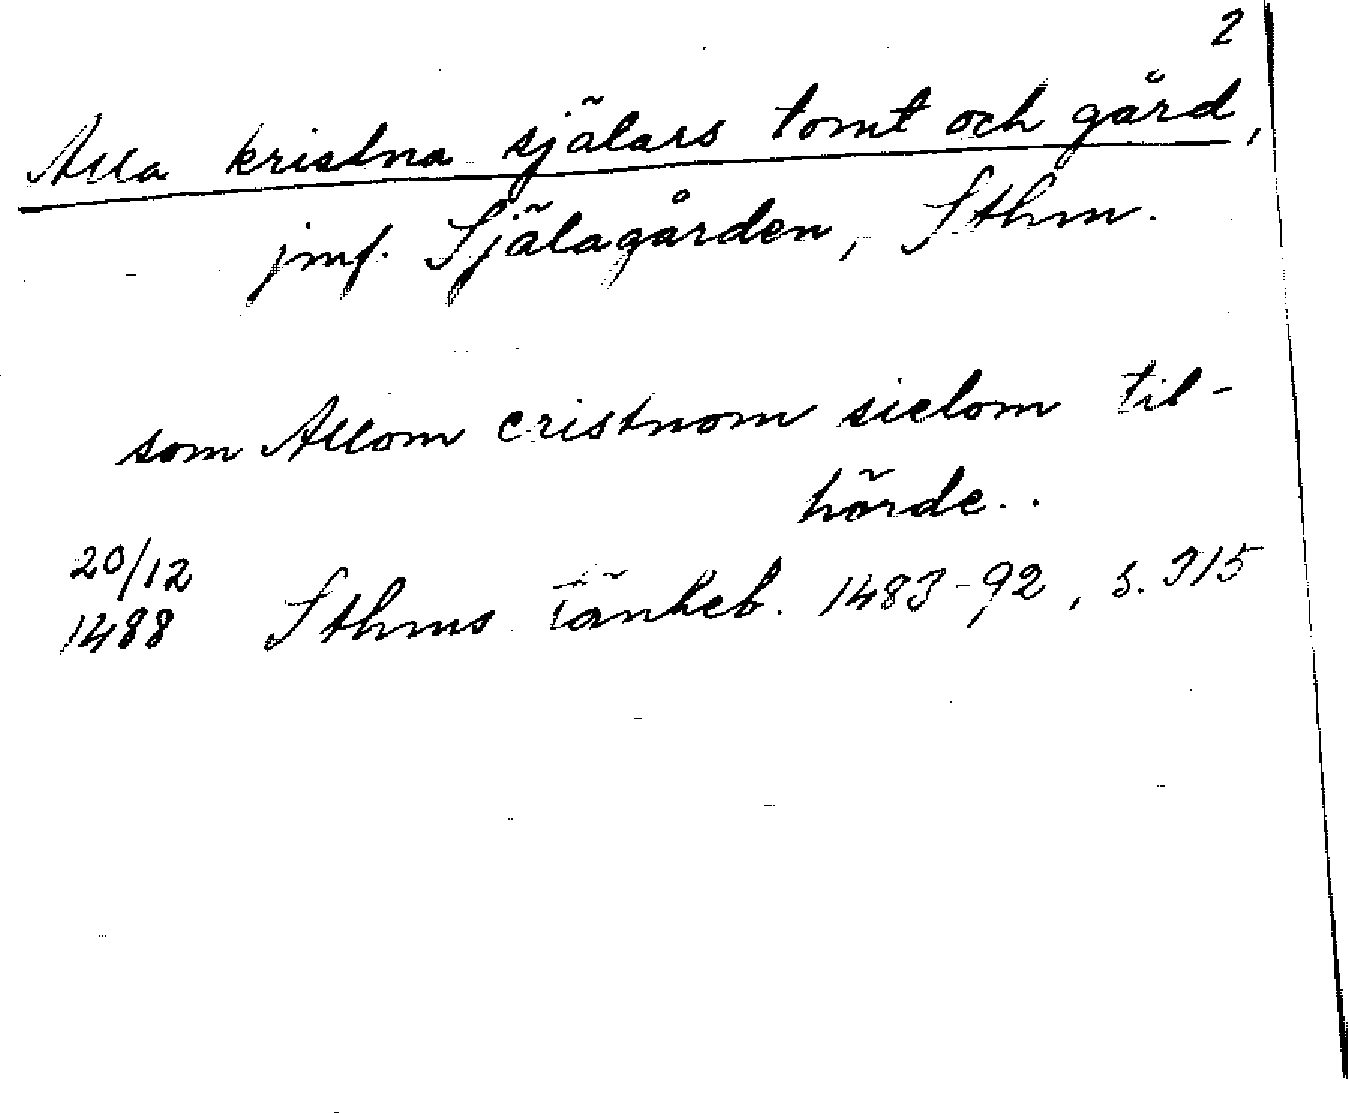 2
Alla kristna själars tomt och gård,
jmf. Själagården, Sthm.
som Allom cristnom sielom til-
hörde..
20/12
1488 Sthms Tänkeb. 1483-92, s. 315